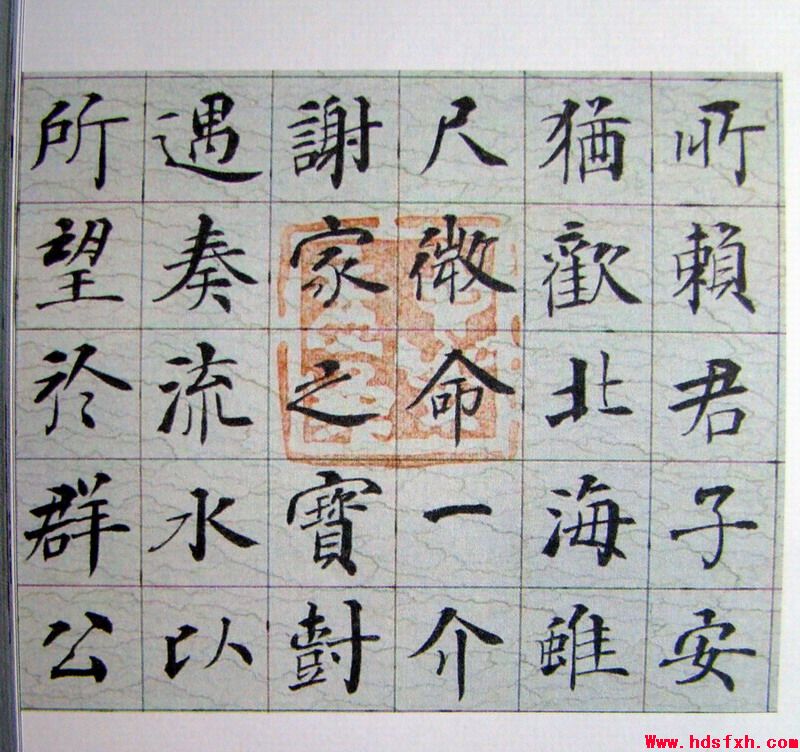 所賴君子安
猶歡北海雖
尺微命一介
謝家之寶尌
遇奏流水以
所望於群公
Www.hdsfxh.com